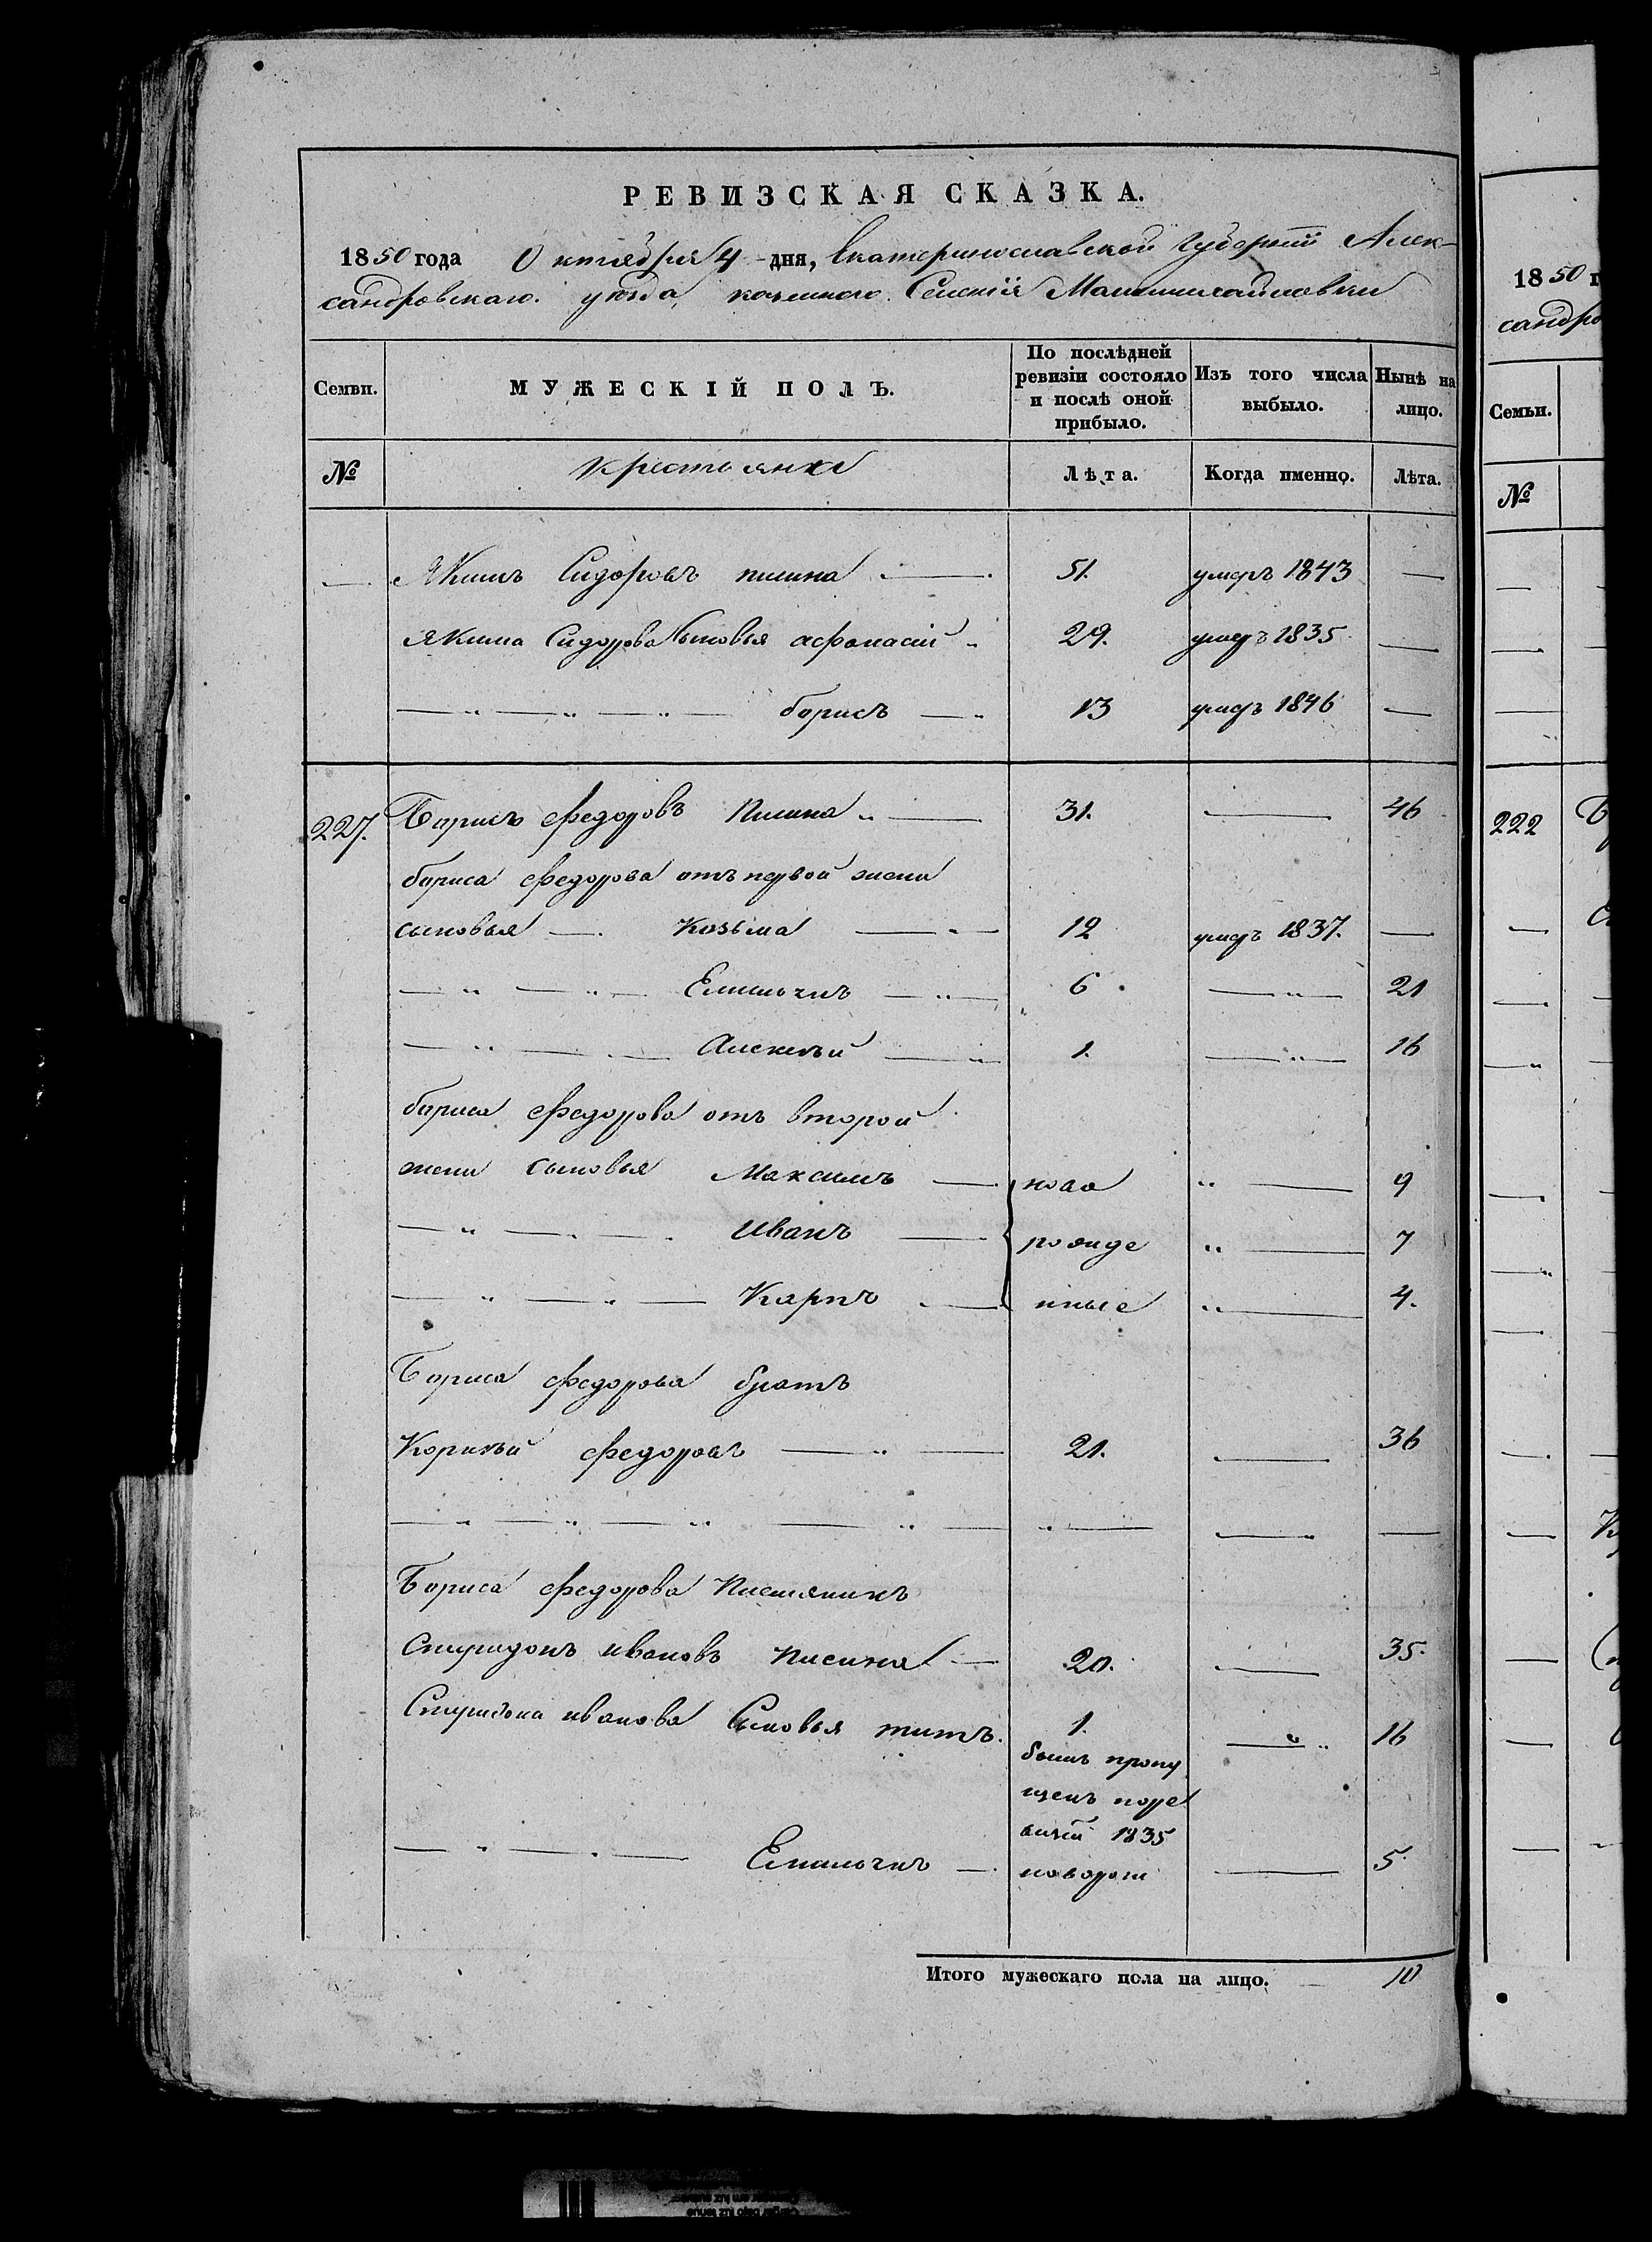 РЕВИЗСКАЯ СКАЗКА.
1850 года Октября 4 дня, Екатеринославской Губернии Алек-
сандровскаго уѣзда, казенного Селенія Малымихайловки
Семьи. МУЖЕСКІЙ ПОЛЪ. По послѣдней ревизіи состояло и послѣ оной прибыло. Изъ того числа выбыло. Нынѣ на лицо.
№ Крестьяна Лѣта. Когда именно. Лѣта.
Якимъ Сидоровъ 51. умеръ 1843
Якима Сидорова Сыновья афонасій 29. умеръ 1835
борисъ 13 умеръ 1846
227. Борисъ федоровъ 31. 46
бориса федорова отъ первой жены
сыновья Козьма 12 умеръ 1837.
Емильянъ 6. 21
Алексѣй 1. 16
бориса федорова отъ второй
жены сыновья Максимъ ново 9
Иванъ рожде 7
Карпъ нные 4.
Бориса федорова братъ
Корнѣй федоровъ 21. 36
Бориса федорова Племяникъ
Спиридонъ ивановъ 20. 35.
Спиридона иванова Сыновья титъ. 1. 16
былъ пропу
щенъ поре
визіи 1835
Емильянъ новорож 5.
Итого мужескаго пола на лицо. 10
1850 г
сандро
Семьи.
№
222